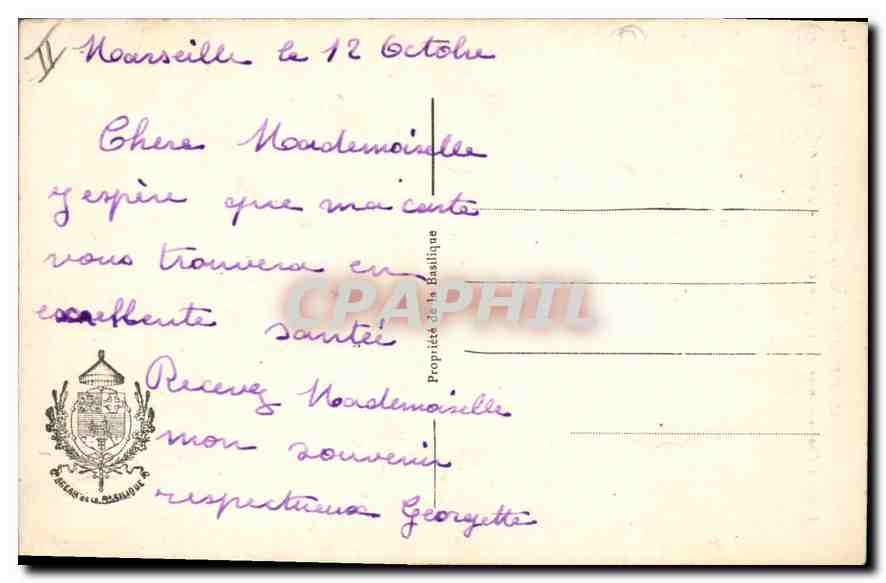 II
Marseille le 12 Octobre
Chere Mademoiselle
J espère que ma carte
vous trouvera en
excellente santée
Recevez Mademoiselle
mon souvenir
respectueux Georgette
Propriété de la Basilique
SCEAU DE LA BASILIQUE
CPAPHIL